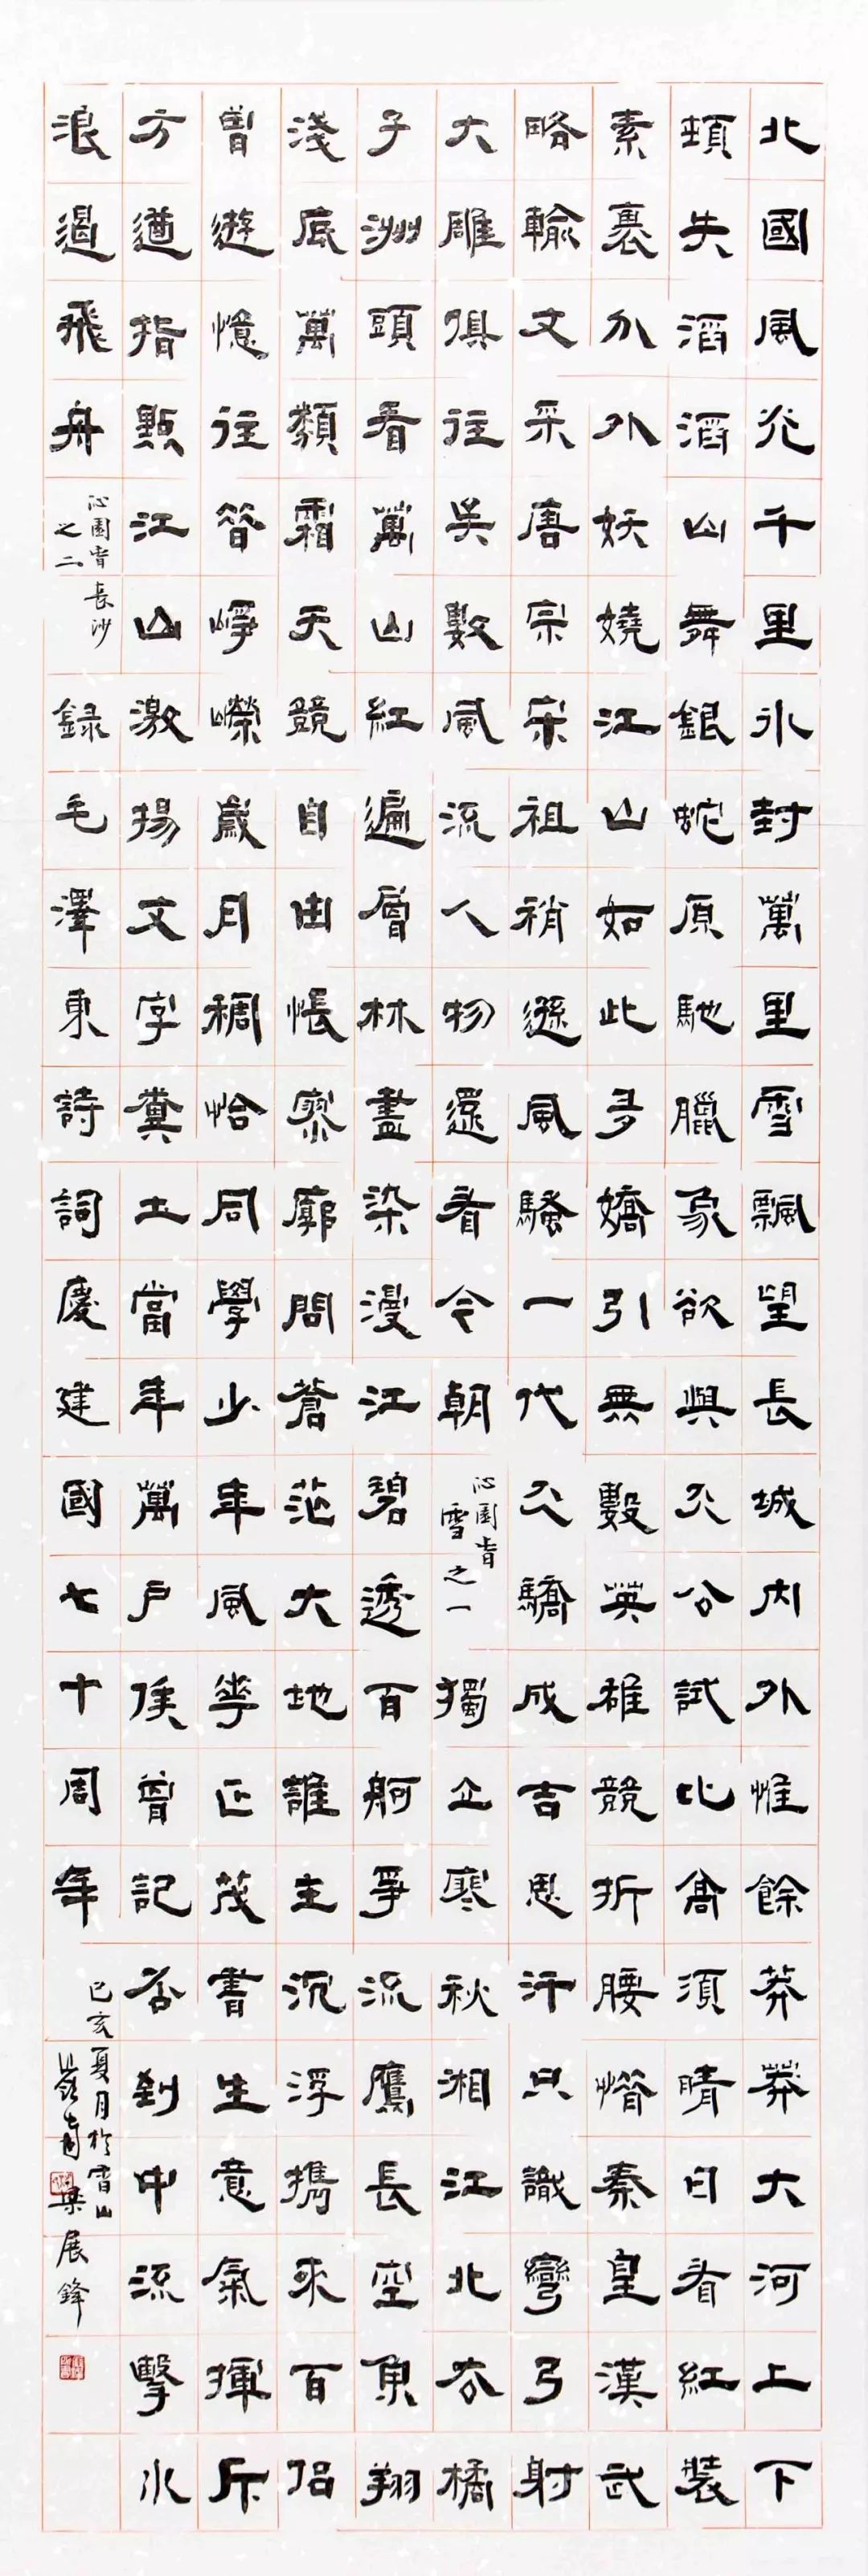 北國風光千里冰封萬里雪飄望長城內外惟餘莽莽大河上下
頓失滔滔山舞銀蛇原馳臘象欲與天公試比高須晴日看紅裝
素裹分外妖嬈江山如此多嬌引無數英雄競折腰惜秦皇漢武
略輸文采唐宗宋祖稍遜風騷一代天驕成吉思汗只識彎弓射
大雕俱往矣數風流人物還看今朝
沁園春
雪之一
獨立寒秋湘江北去橘
子洲頭看萬山紅遍層林盡染漫江碧透百舸爭流鷹長空魚翔
淺底萬類霜天競自由悵寥廓問蒼茫大地誰主沉浮攜來百侶
曾遊憶往昔崢嶸歲月稠恰同學少年風華正茂書生意氣揮斥
方遒指點江山激揚文字糞土當年萬戶侯曾記否到中流擊水
浪遏飛舟
沁園春長沙
之二
錄毛澤東詩詞慶建國七十周年
己亥夏月於山
嶺南梁展鋒